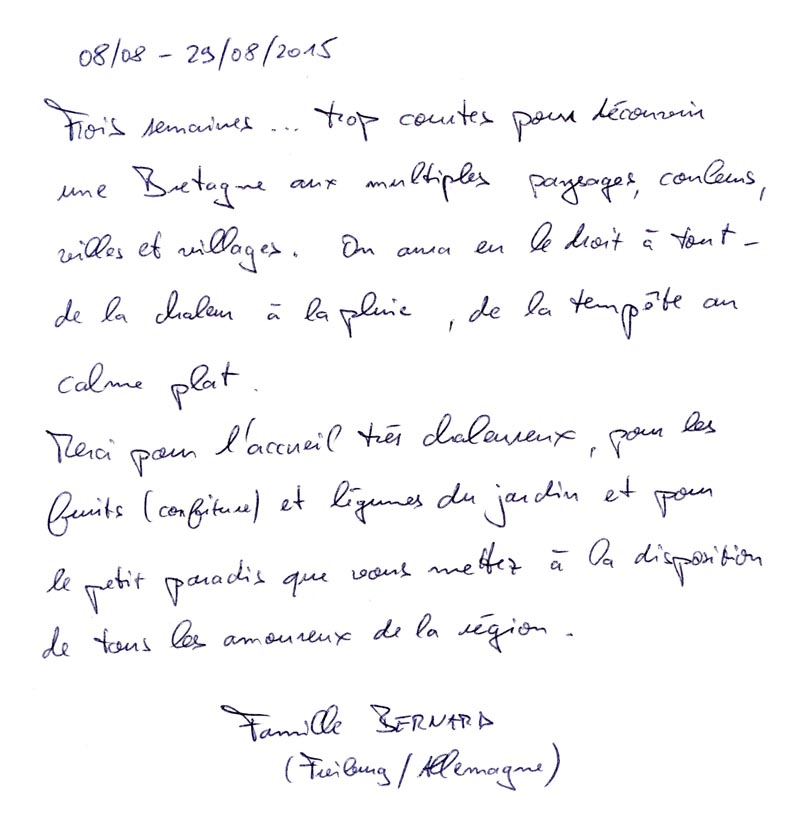 08/08 - 29/08/2015
Trois semaines ... trop courtes pour découvrir
une Bretagne aux multiples paysages, couleurs,
villes et villages. On aura eu le droit à tout -
de la chaleur à la pluie, de la tempête au
calme plat.
Merci pour l'accueil très chaleureux, pour les
fruits (confiture) et légumes du jardin et pour
le petit paradis que vous mettez à la disposition
de tous les amoureux de la région.
Famille BERNARD
(Freiburg / Allemagne)